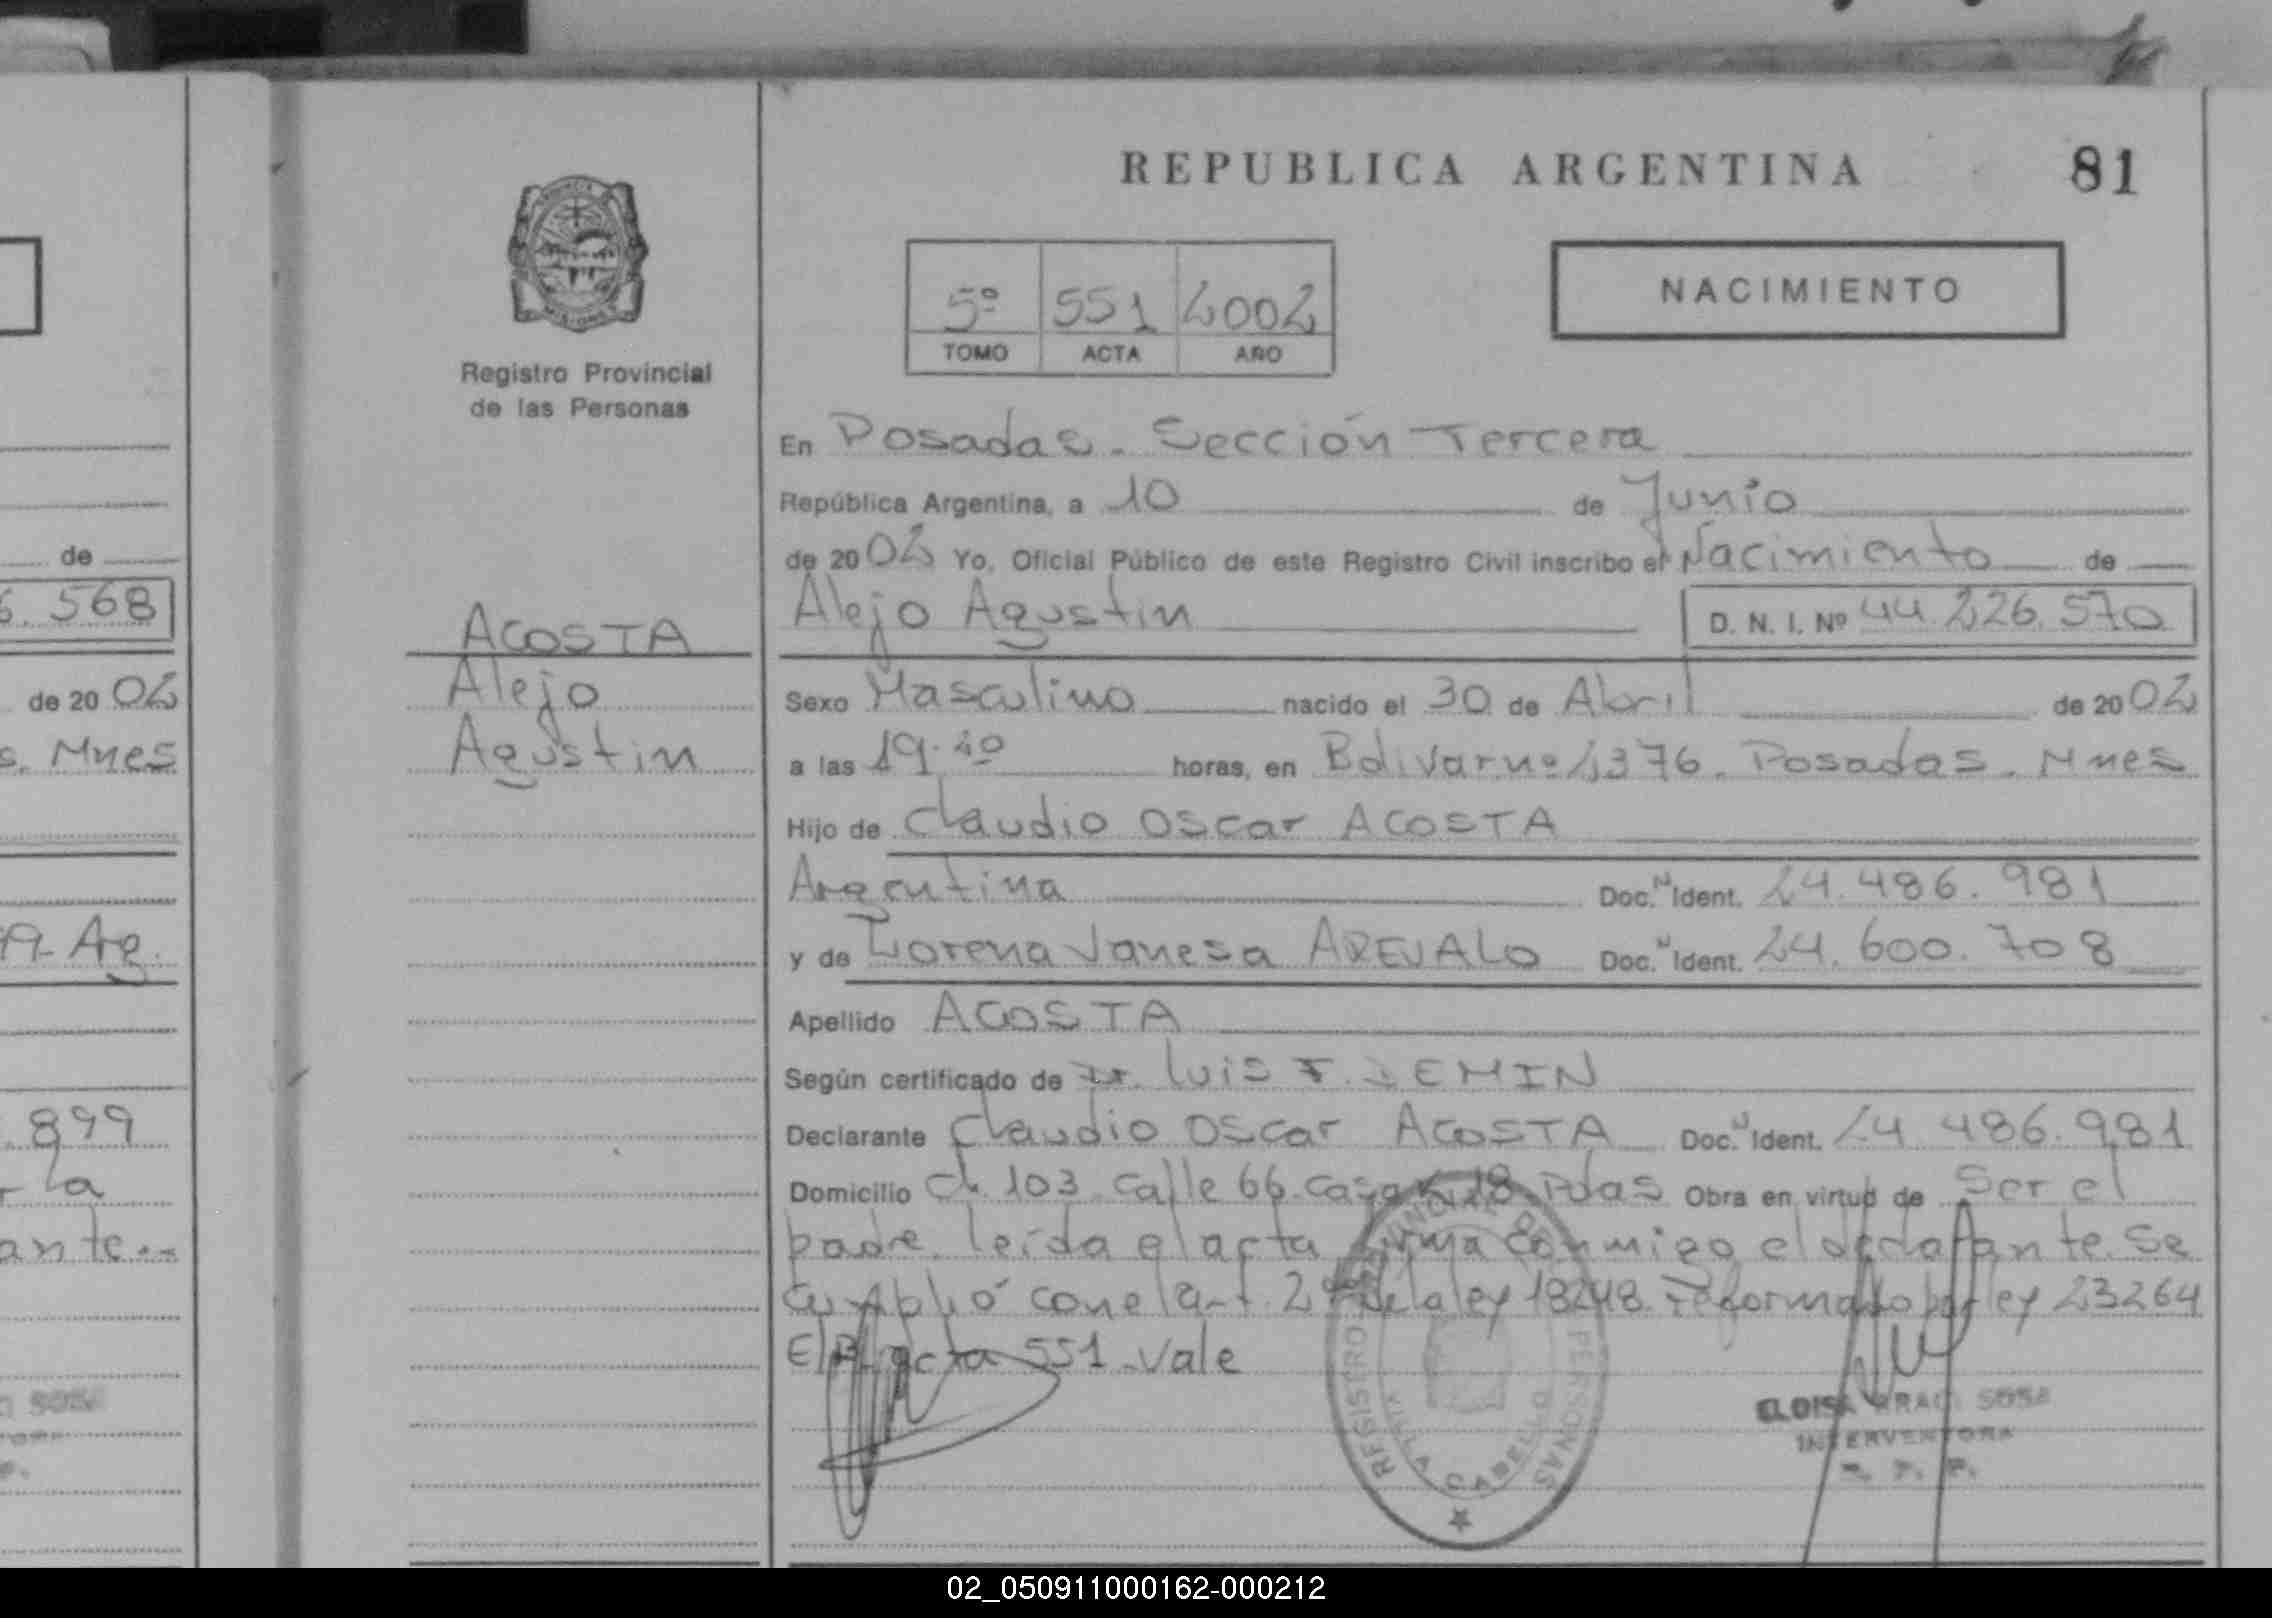 REPUBLICA ARGENTINA 81
5º 551 2002
TOMO ACTA AÑO
NACIMIENTO
Registro Provincial
de las Personas
ACOSTA
Alejo
Agustin
En Posadas. Sección Tercera
República Argentina, a 10 de Junio
de 2002 Yo, Oficial Público de este Registro Civil inscribo el Nacimiento de
Alejo Agustin D. N. I. Nº 44.226.570
Sexo Masculino nacido el 30 de Abril de 2002
a las 19.40 horas, en Bolivar nº 1376. Posadas. Mnes
Hijo de Claudio Oscar ACOSTA
Argentina Doc. N Ident. 24.486.981
y de Lorena Vanesa AREVALO Doc. N Ident. 24.600.708
Apellido ACOSTA
Según certificado de Dr. Luis F. DEMIN
Declarante Claudio Oscar ACOSTA Doc. N Ident. 24 486.981
Domicilio Ch. 103 Calle 66 Casa 18 Pdas Obra en virtud de Ser el
padre. leida el acta firma conmigo el declarante. Se
cumplió con el art. 2º de la ley 18248. reformado por ley 23264
acta 551 Vale
REGISTRO PROVINCIAL DE LAS PERSONAS
VILLA CABELLO
ELOISA SOSA
INTERVENTORA
R. P. P.
de
568
de 2002
s. Mnes
Arg.
.899
r la
ante..
SOSA
02_050911000162-000212